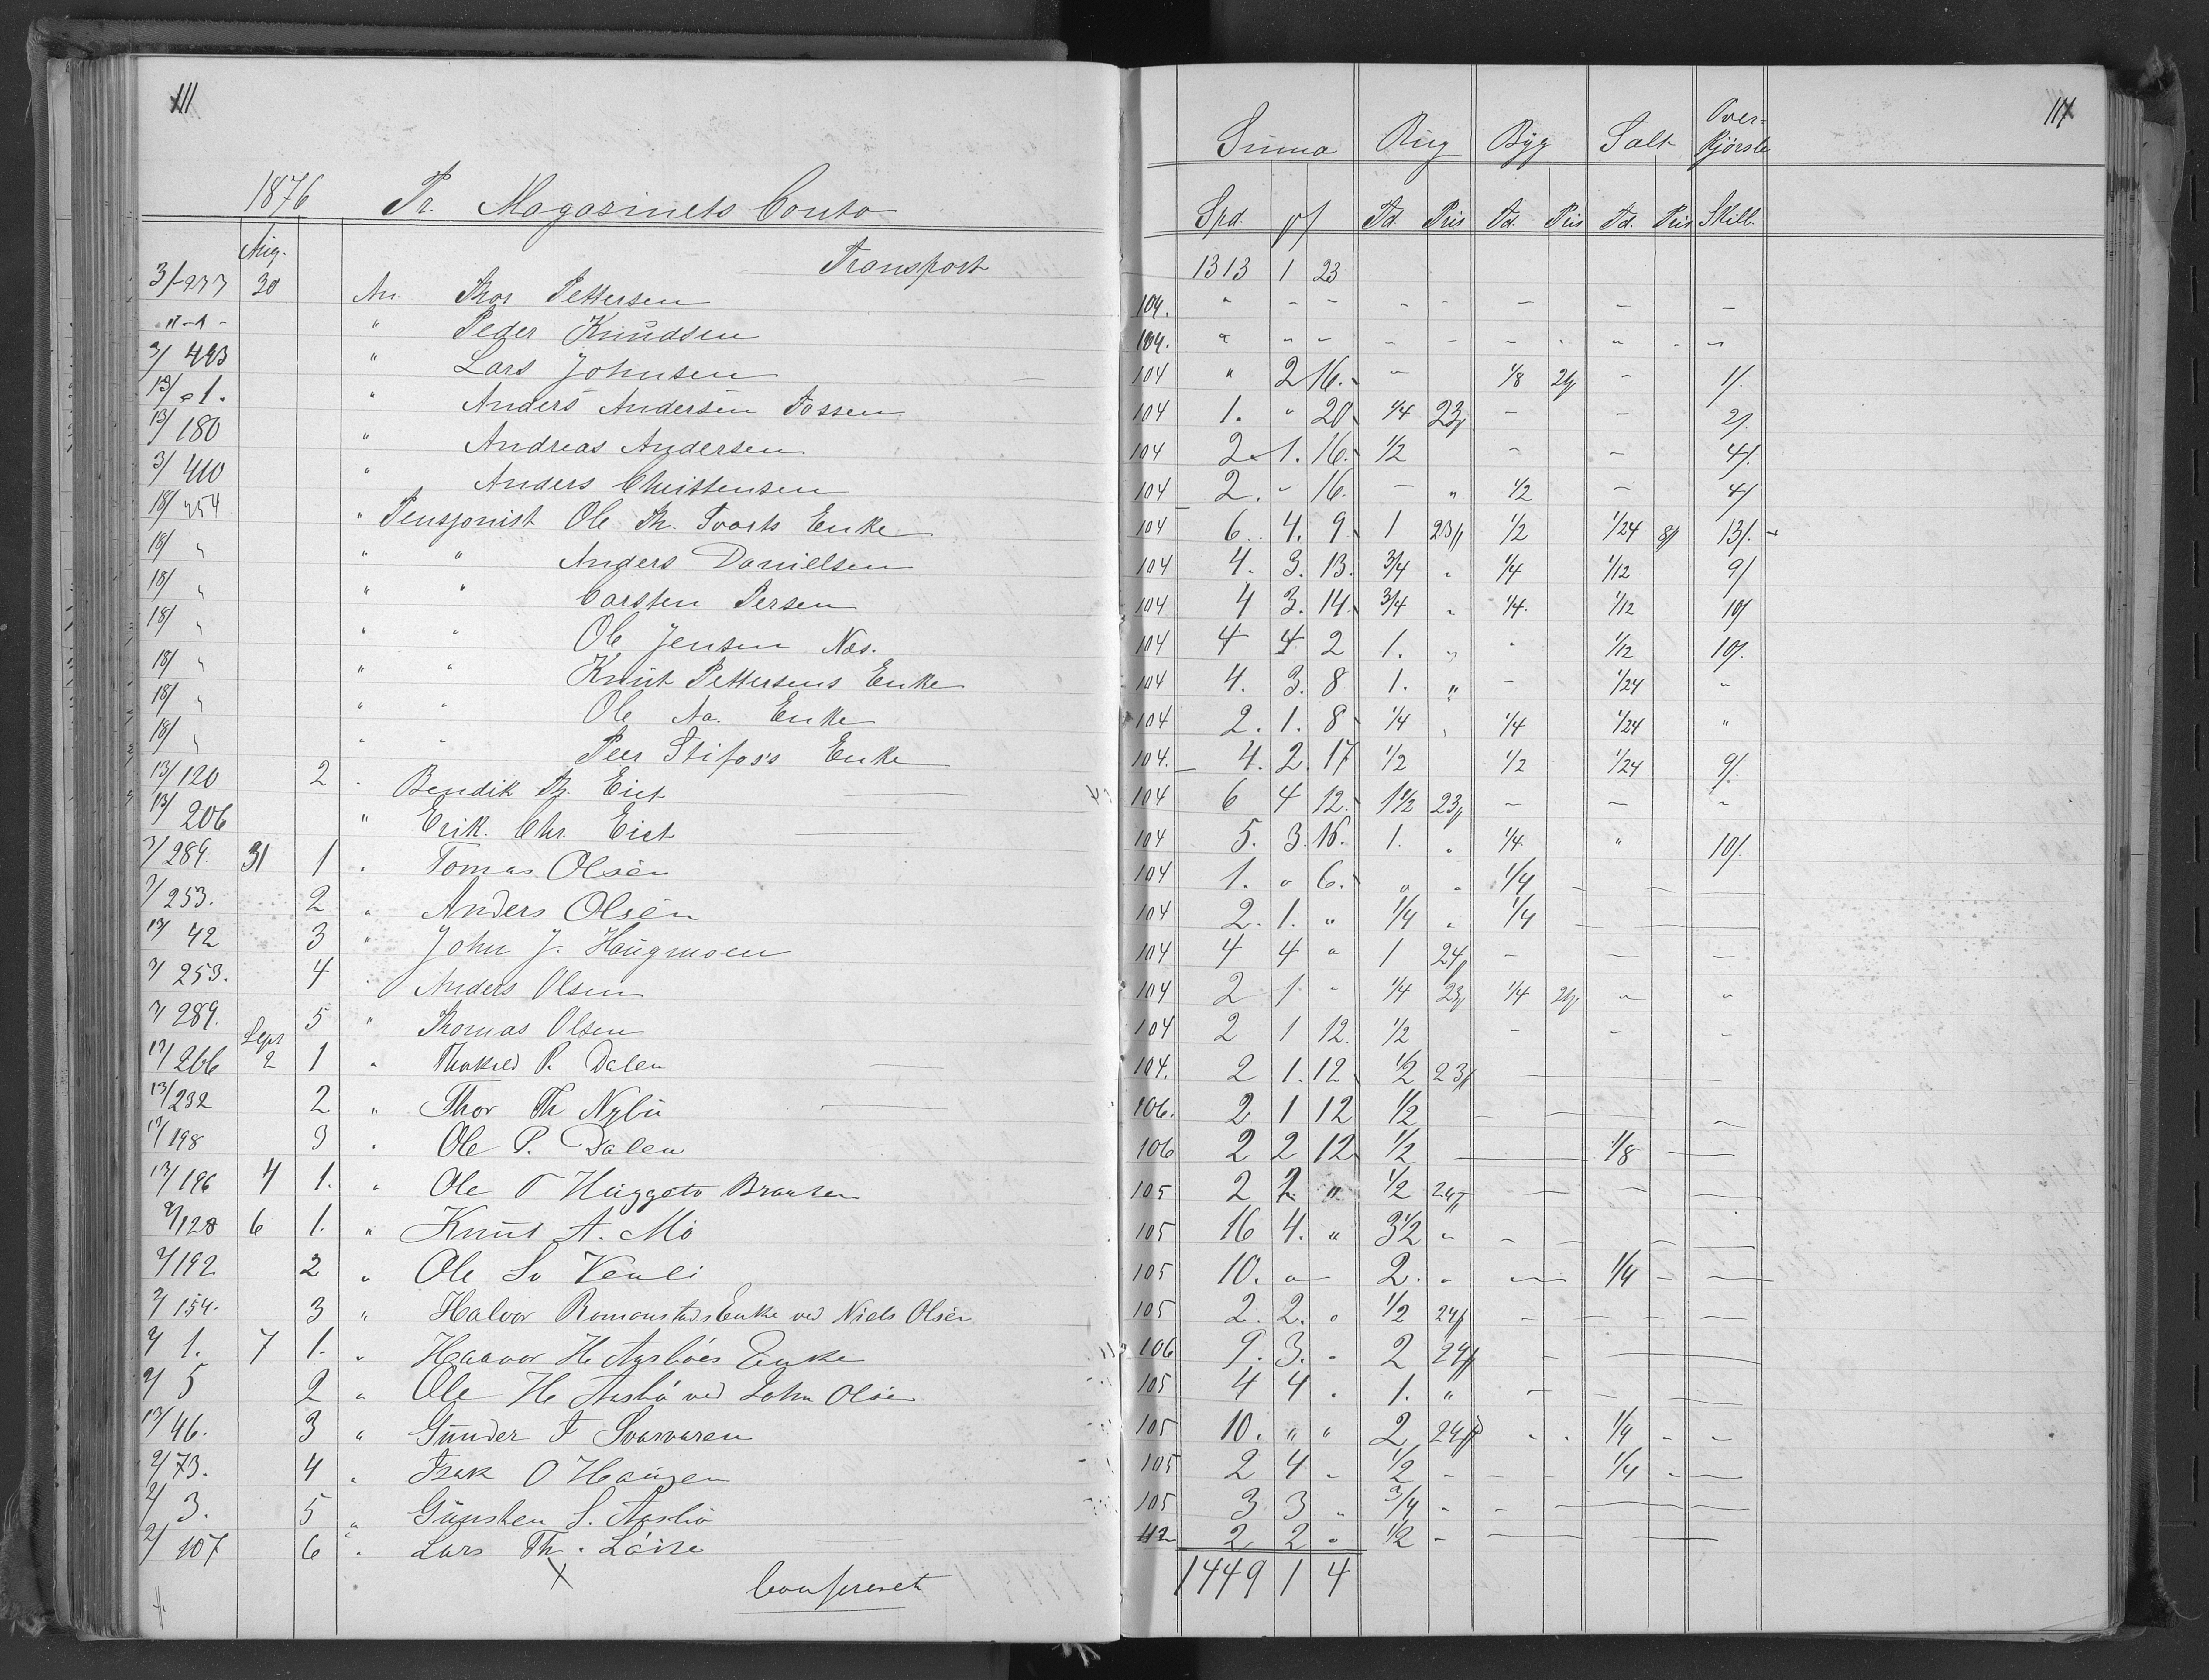 111
1876 Pr. Magasinets Conto
Aug.
Transport
3/ 277 30 An Thor Pettersen
" Peder Knudsen
3/ 493 " Lars Johnsen
13/ 1. " Anders Andersen Fossen
13/ 180 " Andreas Andersen
3/ 410 " Anders Christensen
18/ 254 " Pensjonist Ole Th. Svarts Enke
18/ " " " Anders Danielsen
18/ " " " Carsten Persen
18/ " " " Ole Jensen Næs.
18/ " " " Knut Pettersens Enke
18/ " " " Ole Aa. Enke
18/ " " " Peer Stifoss Enke
13/ 120 2 " Bendik Th. Eiet
13/ 206 " Erik. Chr. Eiet
7/ 289. 31 1 " Tomas Olsen
7/ 253. 2 " Anders Olsen
13/ 42 3 " John J. Haugmoen
7/ 253. 4 " Anders Olsen
7/ 289. 5 " Thomas Olsen
Sept
13/ 266 2 1 " P. Dalen
13/ 232 2 " Thor Th Nybu
13/ 198 3 " Ole P. Dalen
13/ 196 4 1. " Ole T Huggeto Braaten
2/ 128 6 1. " Knut A. Mo
2/ 192 2 " Ole Sv Venli
2/ 154. 3 " Halvor Romonstads Enke ved Niels Olsen
2/ 1. 7 1. " Haavor H. Aasbøes Enke
2/ 5 2 " Ole H. Aasbø ved John Olsen
13/ 46. 3 " Gunder F Svarvaren
2/ 73. 4 " Isak O Haugen
2/ 3. 5 " Gunsten S. Aasbø
2/ 107 6 " Lars Th. Løise
Confereret
111
Summa Rug Byg Salt Over-kjørsle
Spd. Td. Pris Td. Pris Td. Pris Skill.
1313 1 23
104. " - - - - - - -
104. " - - - - - - - - -
104 " 2 16. - 1/8 - 1/.
104 1. " 20 1/4 23 - - 2/.
104 2. 1. 16. 1/2 - - 4/.
104 2. - 16. - " 1/2 - 4/
104 6. 4. 9 1 23 1/2 1/24 8 13/.
104 4. 3. 13. 3/4 " 1/4 1/12 9/
104 4 3. 14. 3/4 " 1/4. 1/12 10/
104 4 4 2 1. " - 1/12 10/.
104 4. 3. 8 1. " - 1/24 -
104 2. 1. 8 1/4 " 1/4 1/24 "
104. 4. 2. 17 1/2 1/2 1/24 9/.
104 6 4 12. 1 1/2 23 - - -
104 5. 3. 16. 1. " 1/4 " 10/.
104 1. " 6. " " 1/4 - - -
104 2. 1. " 1/4 " 1/4 - - -
104 4 4 " 1 24 - - -
104 2 1 - 1/4 23 1/4 - "
104 2 1 12. 1/2 - - -
104. 2 1. 12 1/2 23
106. 2 1 12 1/2
106 2 2 12 1/2 1/8
105 2 2 " 1/2 24
105 16 4. " 3 1/2 "
105 10. " 2. " 1/4
105 2. 2. " 1/2 24
106 9. 3. " 2 24
105 4 4 " 1. "
105 10. " " 2 24 1/4
105 2 4 - 1/2 - 1/4
105 3 3 " 3/4 -
112 2 2 " 1/2 -
1449 1 4